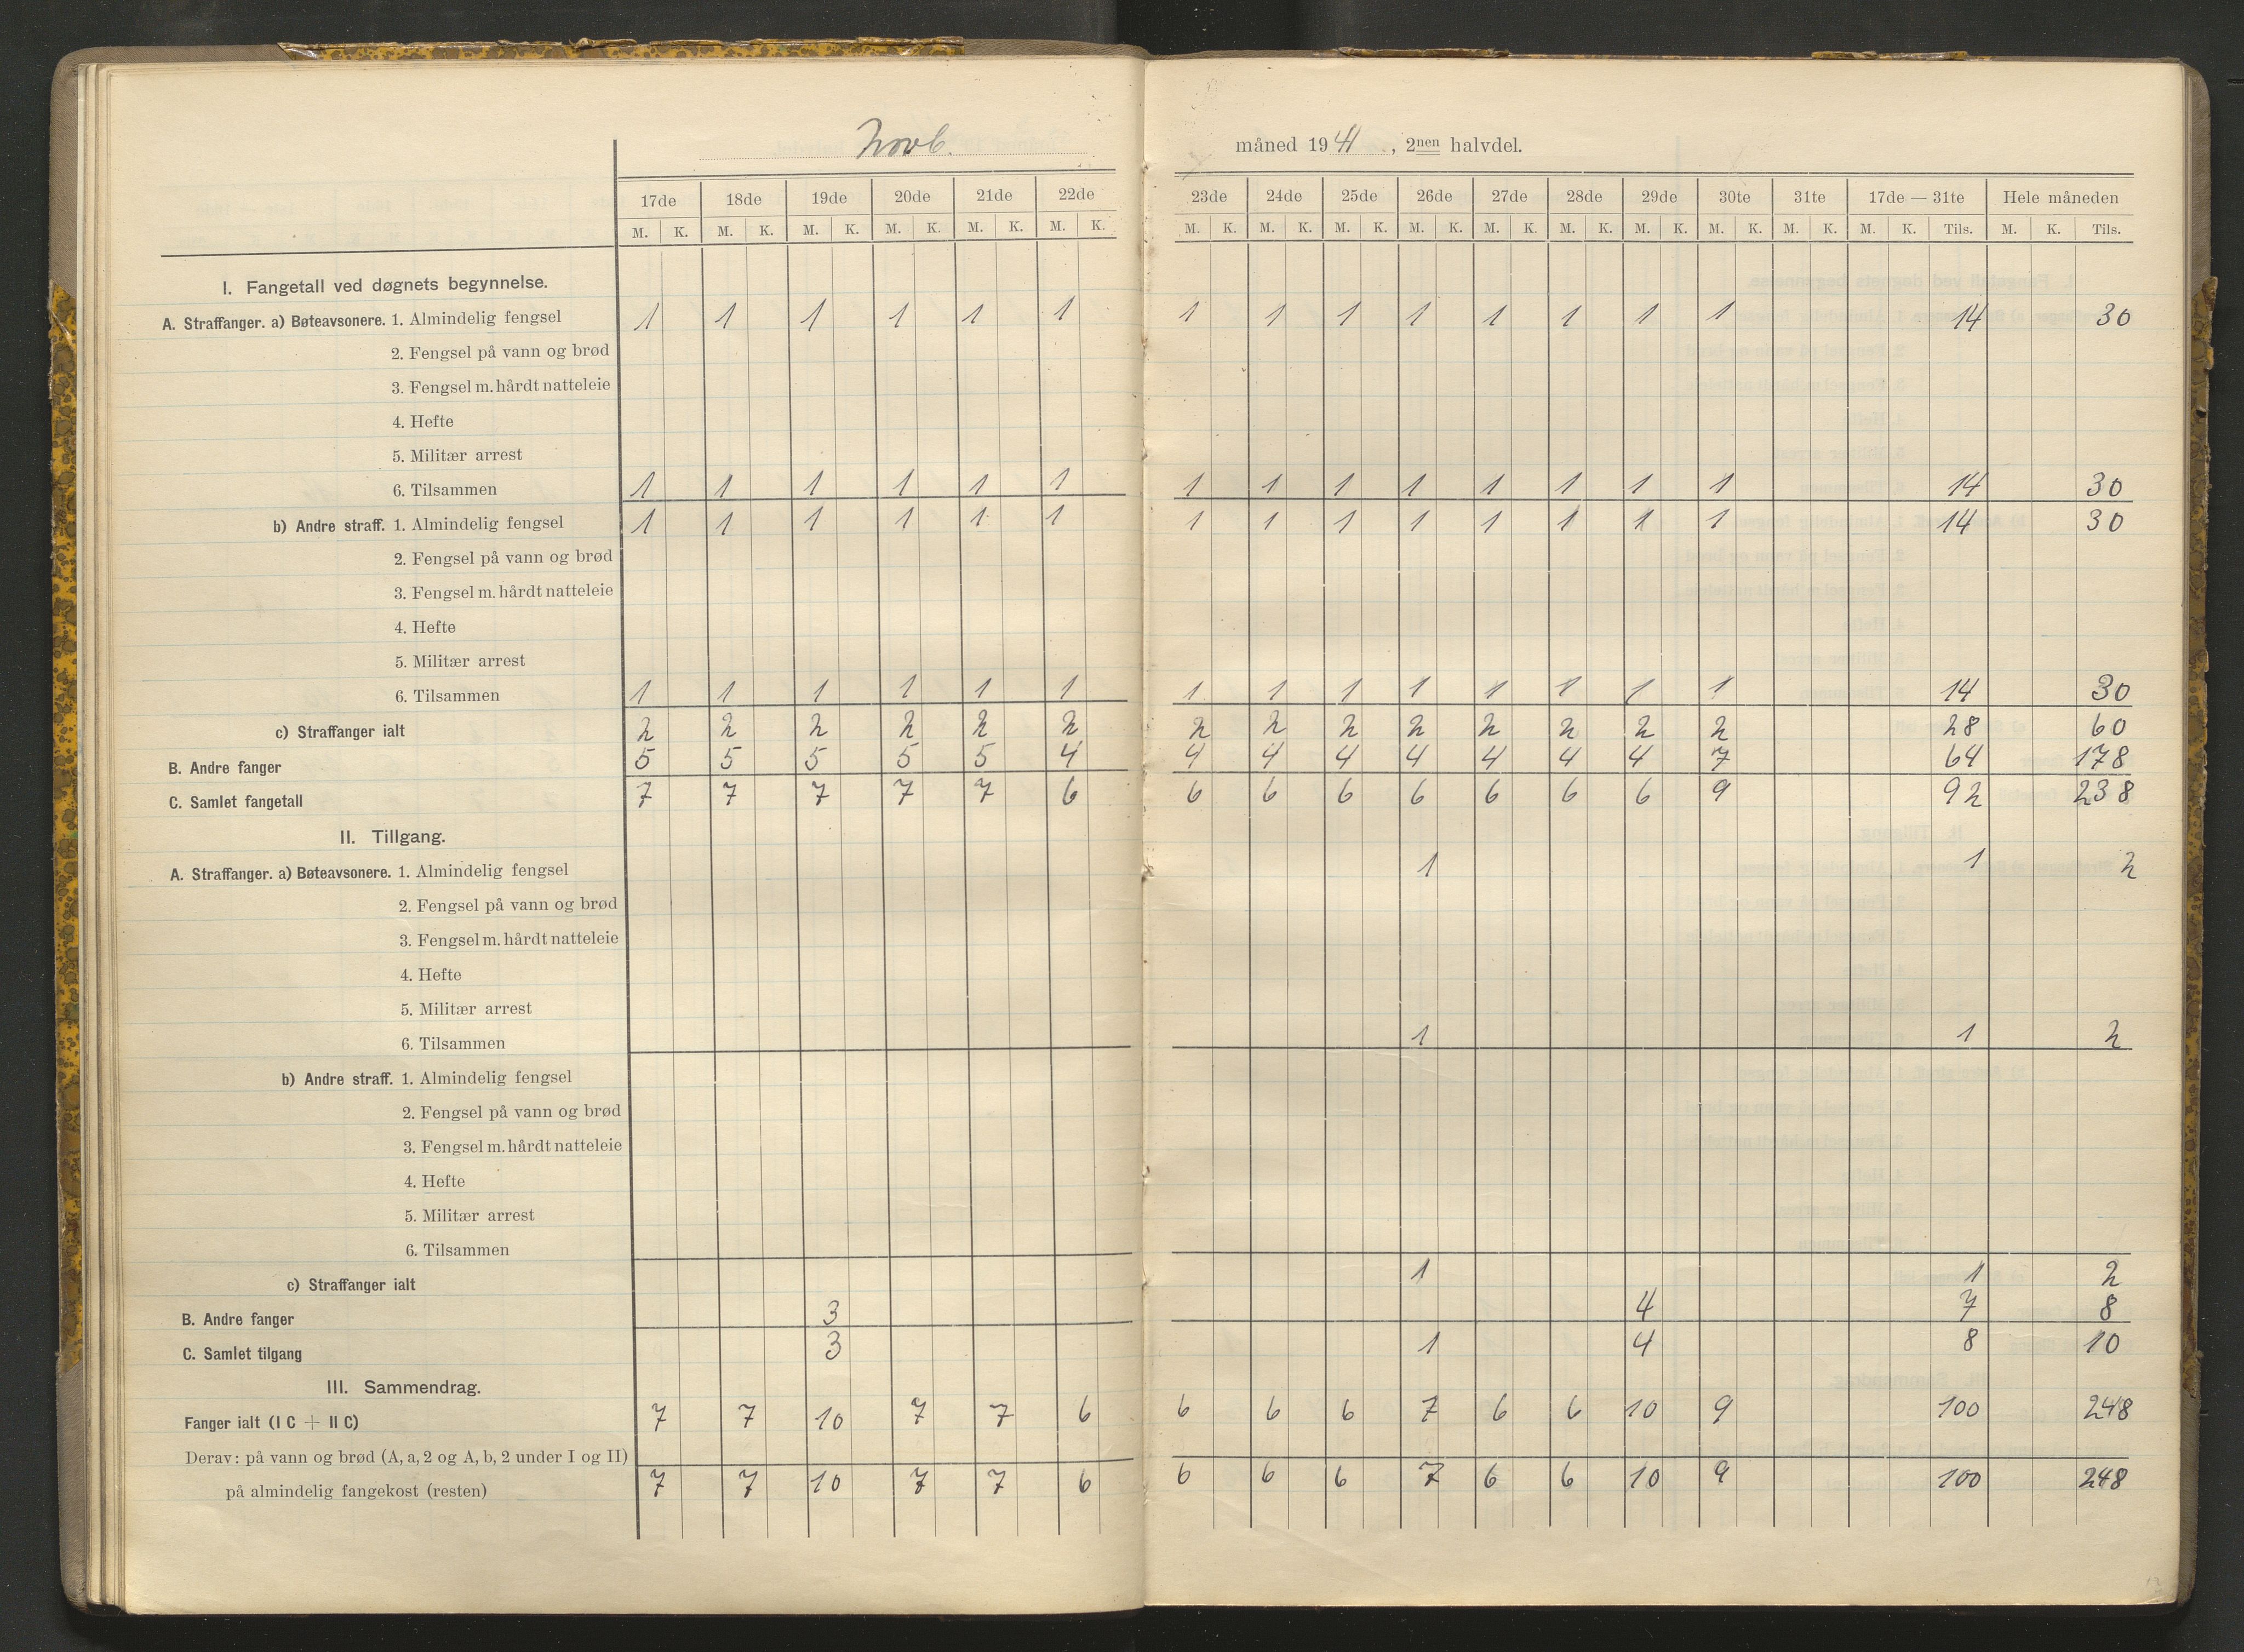 Novb. måned 1941, 2nen halvdel.
17de 18de 19de 20de 21de 22de 23de 24de 25de 26de 27de 28de 29de 30te 31te 17de — 31te Hele måneden
M. K. M. K. M. K. M. K. M. K. M. K. M. K. M. K. M. K. M. K. M. K. M. K. M. K. M. K. M. K. M. K. Tils. M. K. Tils.
I. Fangetall ved døgnets begynnelse.
A. Straffanger. a) Bøteavsonere. 1. Almindelig fengsel 1 1 1 1 1 1 1 1 1 1 1 1 1 1 14 30
2. Fengsel på vann og brød
3. Fengsel m. hårdt natteleie
4. Hefte
5. Militær arrest
6. Tilsammen 1 1 1 1 1 1 1 1 1 1 1 1 1 1 14 30
b) Andre straff. 1. Almindelig fengsel 1 1 1 1 1 1 1 1 1 1 1 1 1 1 14 30
2. Fengsel på vann og brød
3. Fengsel m. hårdt natteleie
4. Hefte
5. Militær arrest
6. Tilsammen 1 1 1 1 1 1 1 1 1 1 1 1 1 1 14 30
c) Straffanger ialt 2 2 2 2 2 2 2 2 2 2 2 2 2 2 28 60
B. Andre fanger 5 5 5 5 5 4 4 4 4 4 4 4 4 7 64 178
C. Samlet fangetall 7 7 7 7 7 6 6 6 6 6 6 6 6 9 92 238
II. Tillgang.
A. Straffanger. a) Bøteavsonere. 1. Almindelig fengsel 1 1 2
2. Fengsel på vann og brød
3. Fengsel m. hårdt natteleie
4. Hefte
5. Militær arrest
6. Tilsammen 1 1 2
b) Andre straff. 1. Almindelig fengsel
2. Fengsel på vann og brød
3. Fengsel m. hårdt natteleie
4. Hefte
5. Militær arrest
6. Tilsammen
c) Straffanger ialt 1 1 2
B. Andre fanger 3 4 7 8
C. Samlet tilgang 3 1 4 8 10
III. Sammendrag.
Fanger ialt (I C + II C) 7 7 10 7 7 6 6 6 6 7 6 6 10 9 100 248
Derav: på vann og brød (A, a, 2 og A, b, 2 under I og II)
på almindelig fangekost (resten) 7 7 10 7 7 6 6 6 6 7 6 6 10 9 100 248